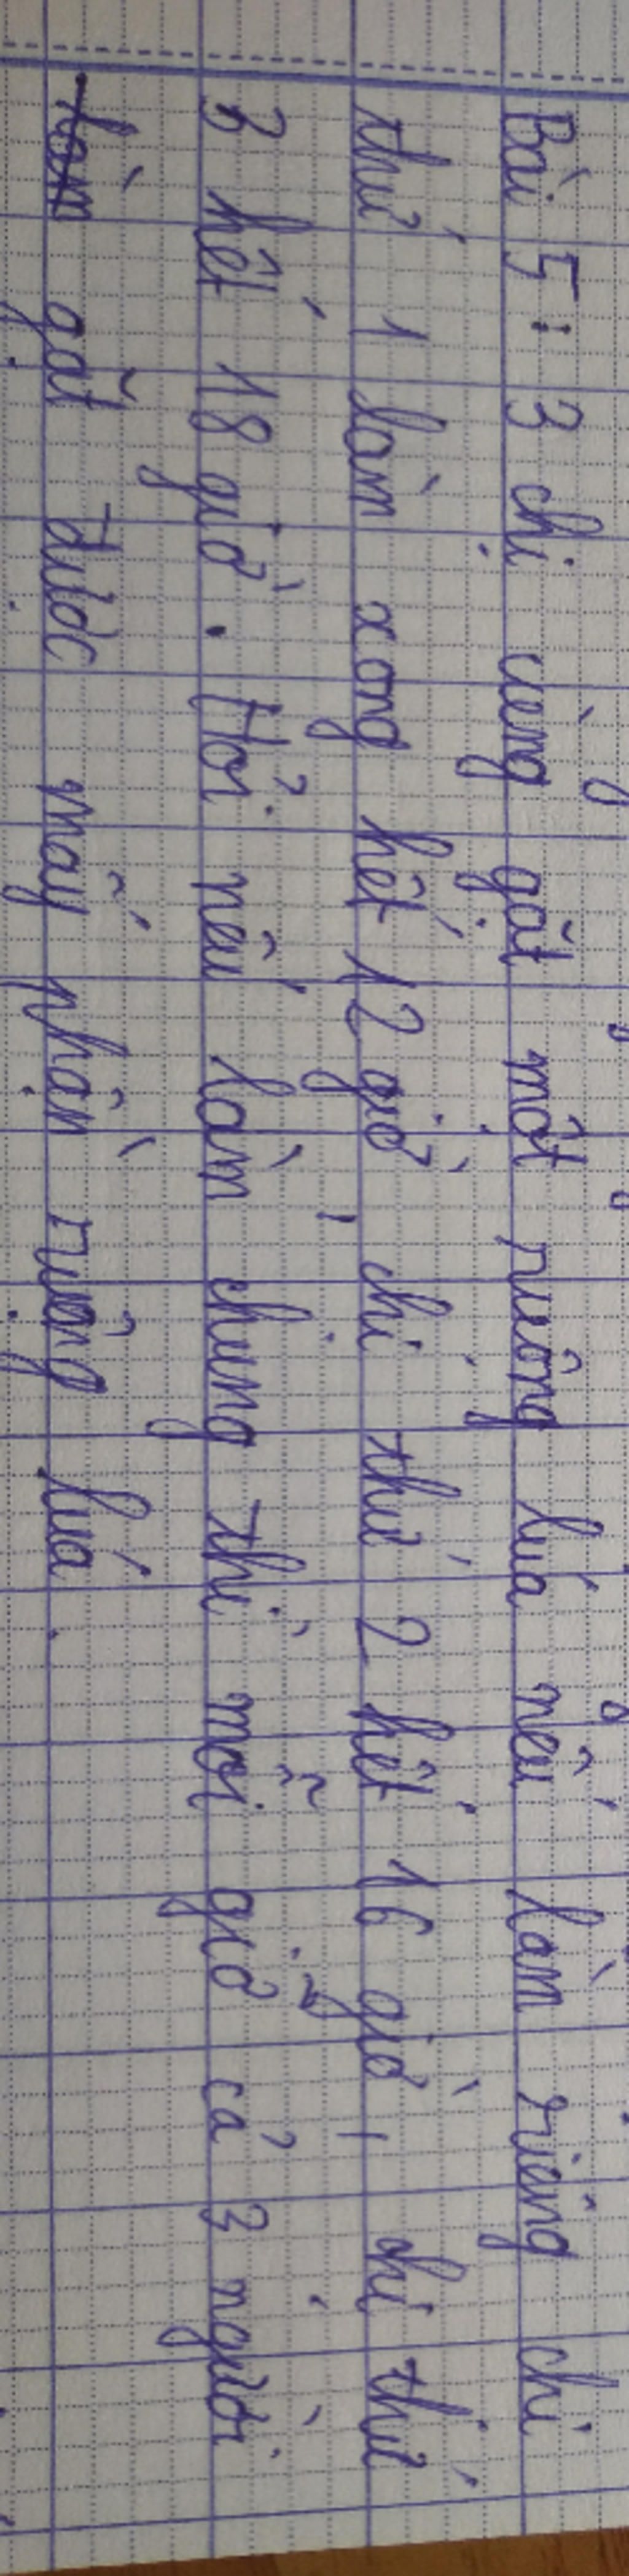 Bài 5 : 3 chị cùng gặt một ruộng lúa nếu làm riêng chị
thứ 1 làm xong hết 12 giờ, chị thứ 2 hết 16 giờ, chị thứ
3 hết 18 giờ. Hỏi nếu làm chung thì mỗi giờ cả 3 người
gặt được mấy phần ruộng lúa.